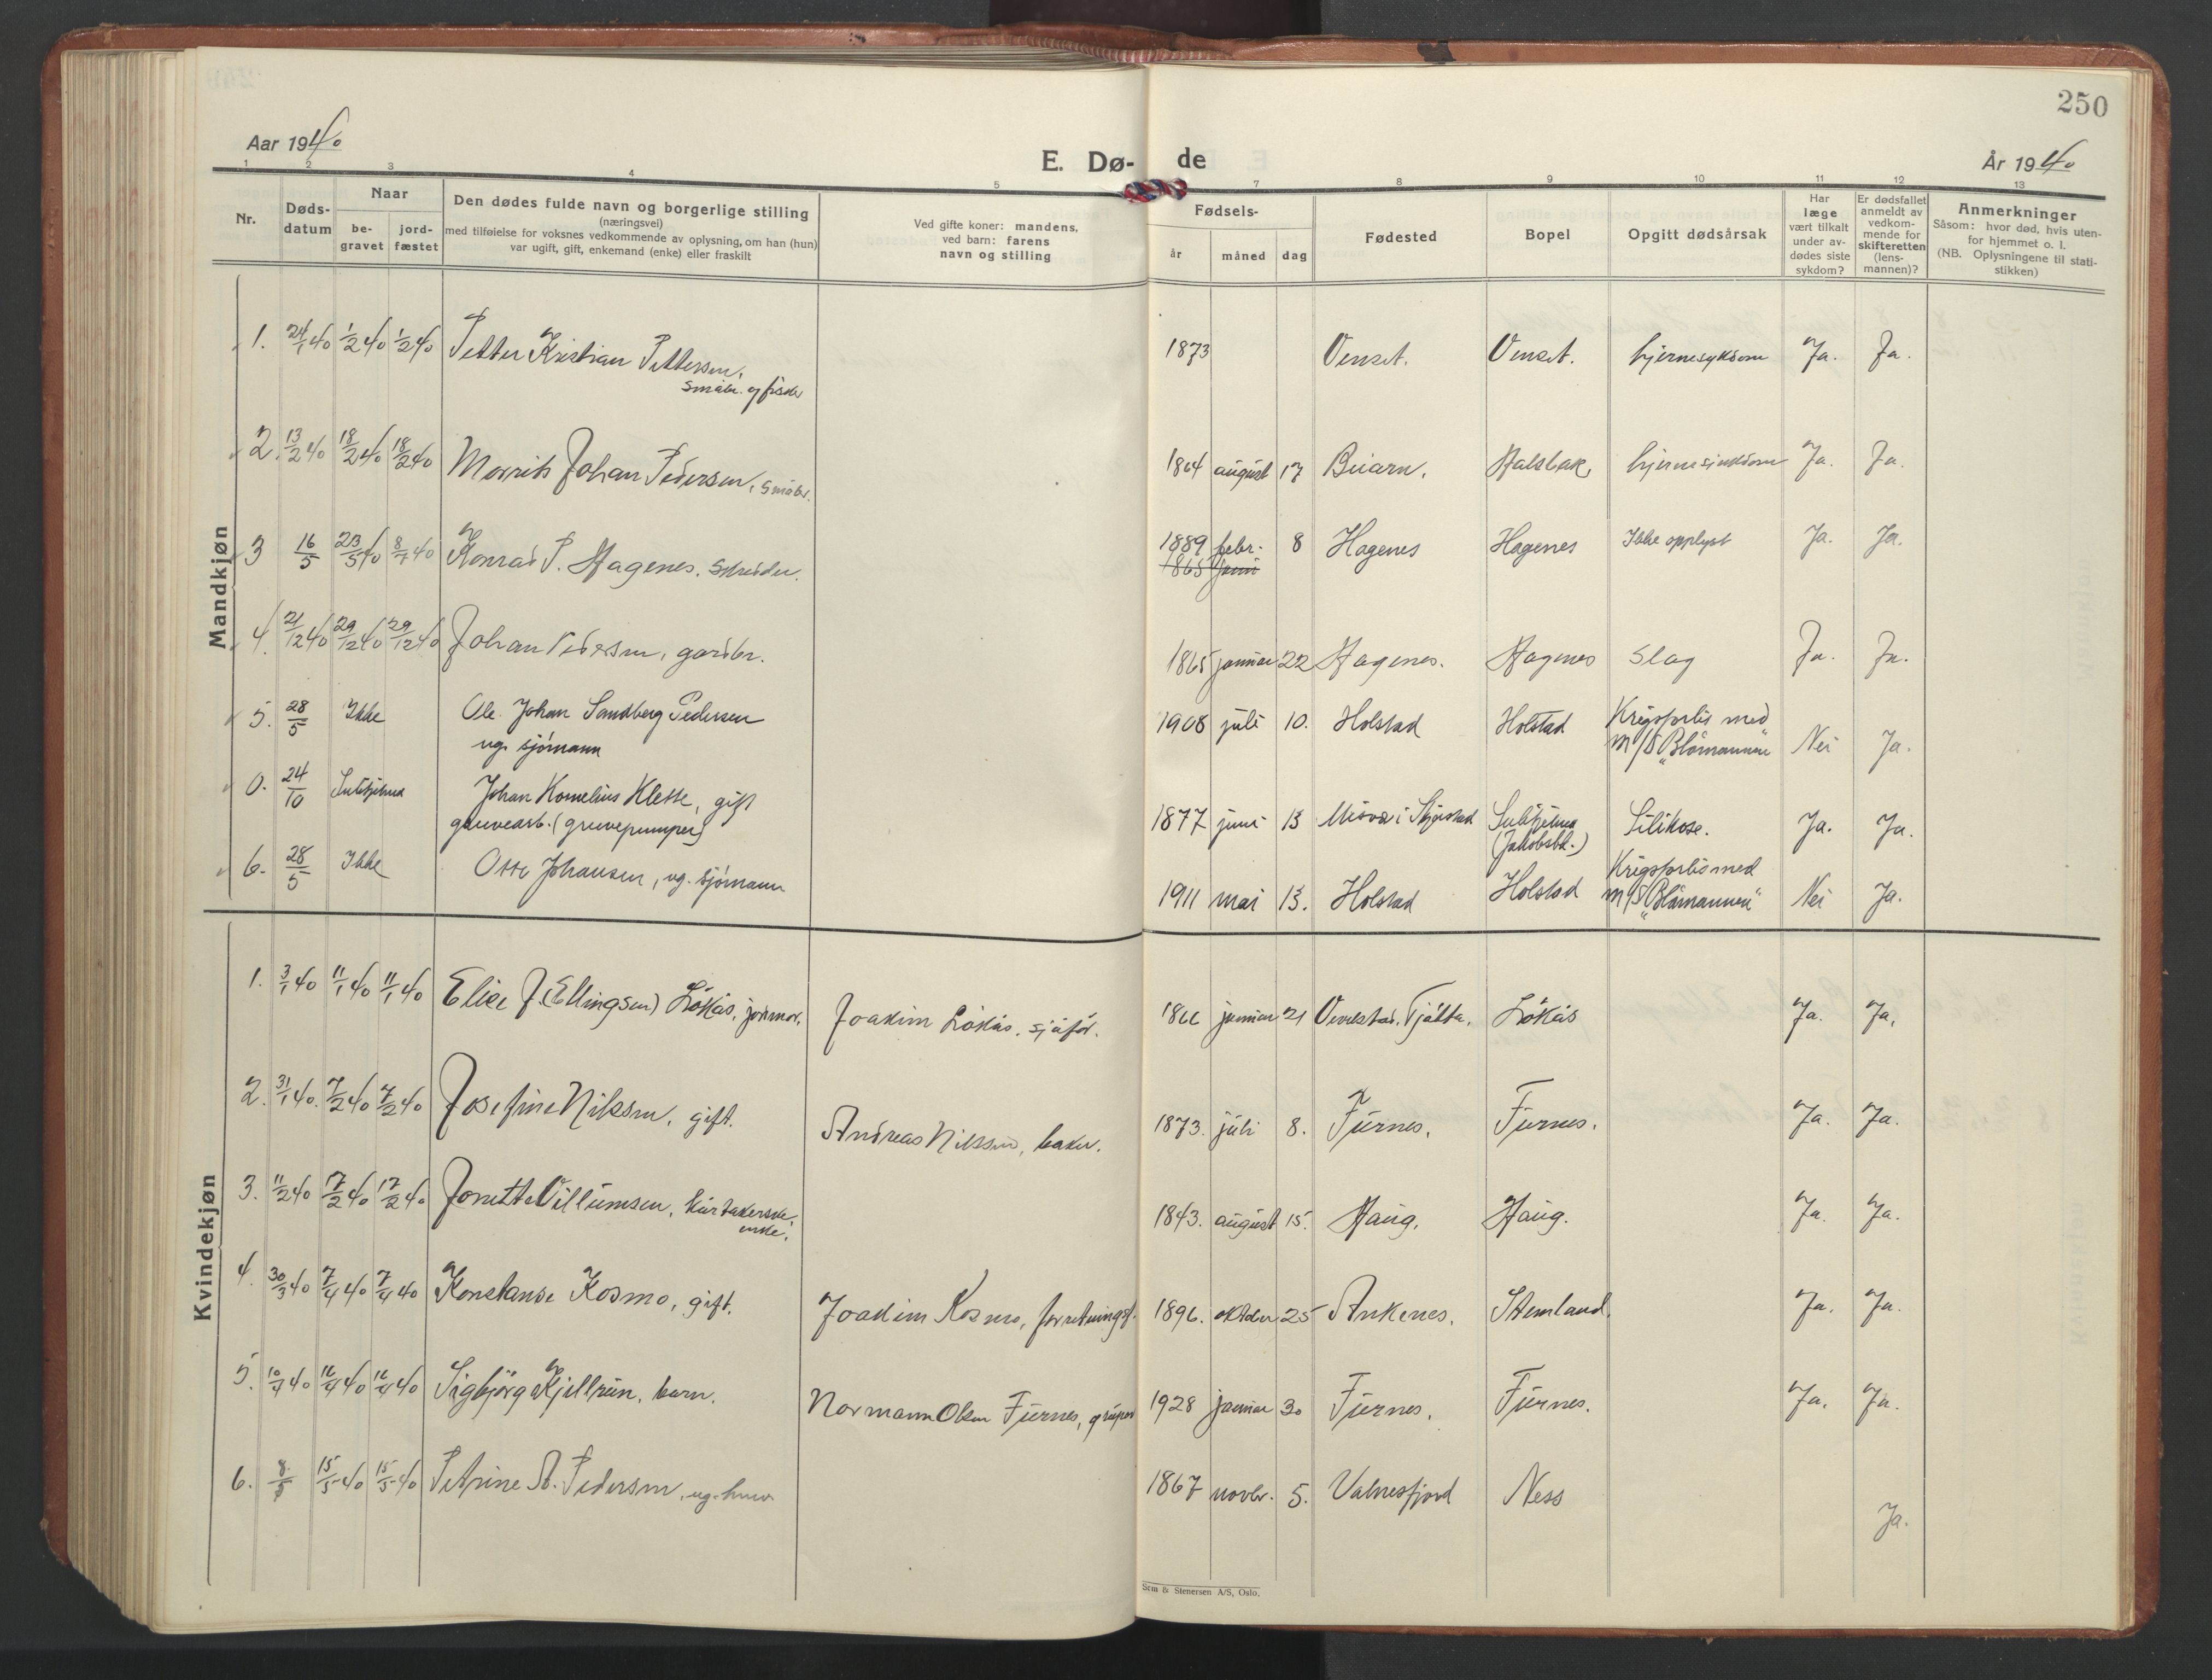 250
Aar 1940
E. Dø- de
År 1940
1 2 3 4 5 7 8 9 10 11 12 13
Nr.
Døds-
datum
Naar
be-
gravet
jord-
fæstet
Den dødes fulde navn og borgerlige stilling
(næringsvei)
med tilføielse for voksnes vedkommende av oplysning, om han (hun)
var ugift, gift, enkemand (enke) eller fraskilt
Ved gifte koner: mandens,
ved barn: farens
navn og stilling
Fødsels-
år måned dag
Fødested
Bopel
Opgitt dødsårsak
Har
læge
vært tilkalt
under av-
dødes siste
sykdom?
Er dødsfallet
anmeldt av
vedkom-
mende for
skifteretten
(lens-
mannen)?
Anmerkninger
Såsom: hvor død, hvis uten-
for hjemmet o. l.
(NB. Oplysningene til stati-
stikken)
Mandkjøn
1. 24/1 40 1/2 40 1/2 40 Petter Kristian Pettersen, 1873 Venset. Venset. hjernesykdom Ja. Ja.
småbr. og fisker
2. 13/2 40 18/2 40 18/2 40 Morits Johan Pedersen, småbr. 1864 august 17 Beiarn. Halsbak hjernesjukdom Ja. Ja.
3 16/5 23/5 40 8/7 40 Konrad P. Hagenes, skredder. 1889 febr. 8 Hagenes Hagenes Ikke opplyst Ja. Ja.
1865 juni
4. 21/12 40 29/12 40 29/12 40 Johan Pedersen, gardbr. 1865 januar 22 Hagenes. Hagenes slag Ja. Ja.
5. 28/5 Ikke Ole Johan Sandberg Pedersen 1908 juli 10. Holstad Holstad Krigsforlis med
ug. sjømann m/S "Blåmannen" Nei Ja.
0. 24/10 Sulitjelma Johan Kornelius Klette, gift
gruvearb. (gruvepumper) 1877 juni 13 Misvær i Skjerstad Sulitjelma Silikose. Ja. Ja.
(Jakobsbk.)
6. 28/5 Ikke Otto Johansen, ug. sjømann 1911 mai 13. Holstad Holstad Krigsforlis med
m/S "Blåmannen" Nei Ja.
Kvindekjøn
1. 3/1 40 11/1 40 11/1 40 Elise J. (Ellingsen) Løkås, jormor. Joakim Løkås, sjåfør. 1866 januar 21 Vevelstad, Tjøtta. Løkås Ja. Ja.
2. 31/1 40. 7/2 40 7/2 40 Josefine Nilsen, gift. Andreas Nilssen, baker. 1873. juli 8. Furnes. Furnes. Ja. Ja.
3. 11/2 40 17/2 40 17/2 40 Jonette Villumsen, kårtakerske, 1843. august 15. Haug. Haug. Ja. Ja.
enke.
4. 30/3 40 7/4 40 7/4 40 Konstanse Kosmo, gift. Joakim Kosmo, forretningsf. 1896. oktober 25 Ankenes. Stemland. Ja. Ja.
5. 10/4 40 16/4 40 16/4 40 Sigbjørg Kjellrun, barn. Normann Olsen Furnes, 1928 januar 30 Furnes. Furnes. Ja. Ja.
6. 8/5 15/5 40 15/5 40 Petrine A. Pedersen, ug. 1867 novbr. 5. Valnesfjord Ness Ja.
Sem & Stenersen A/S, Oslo.